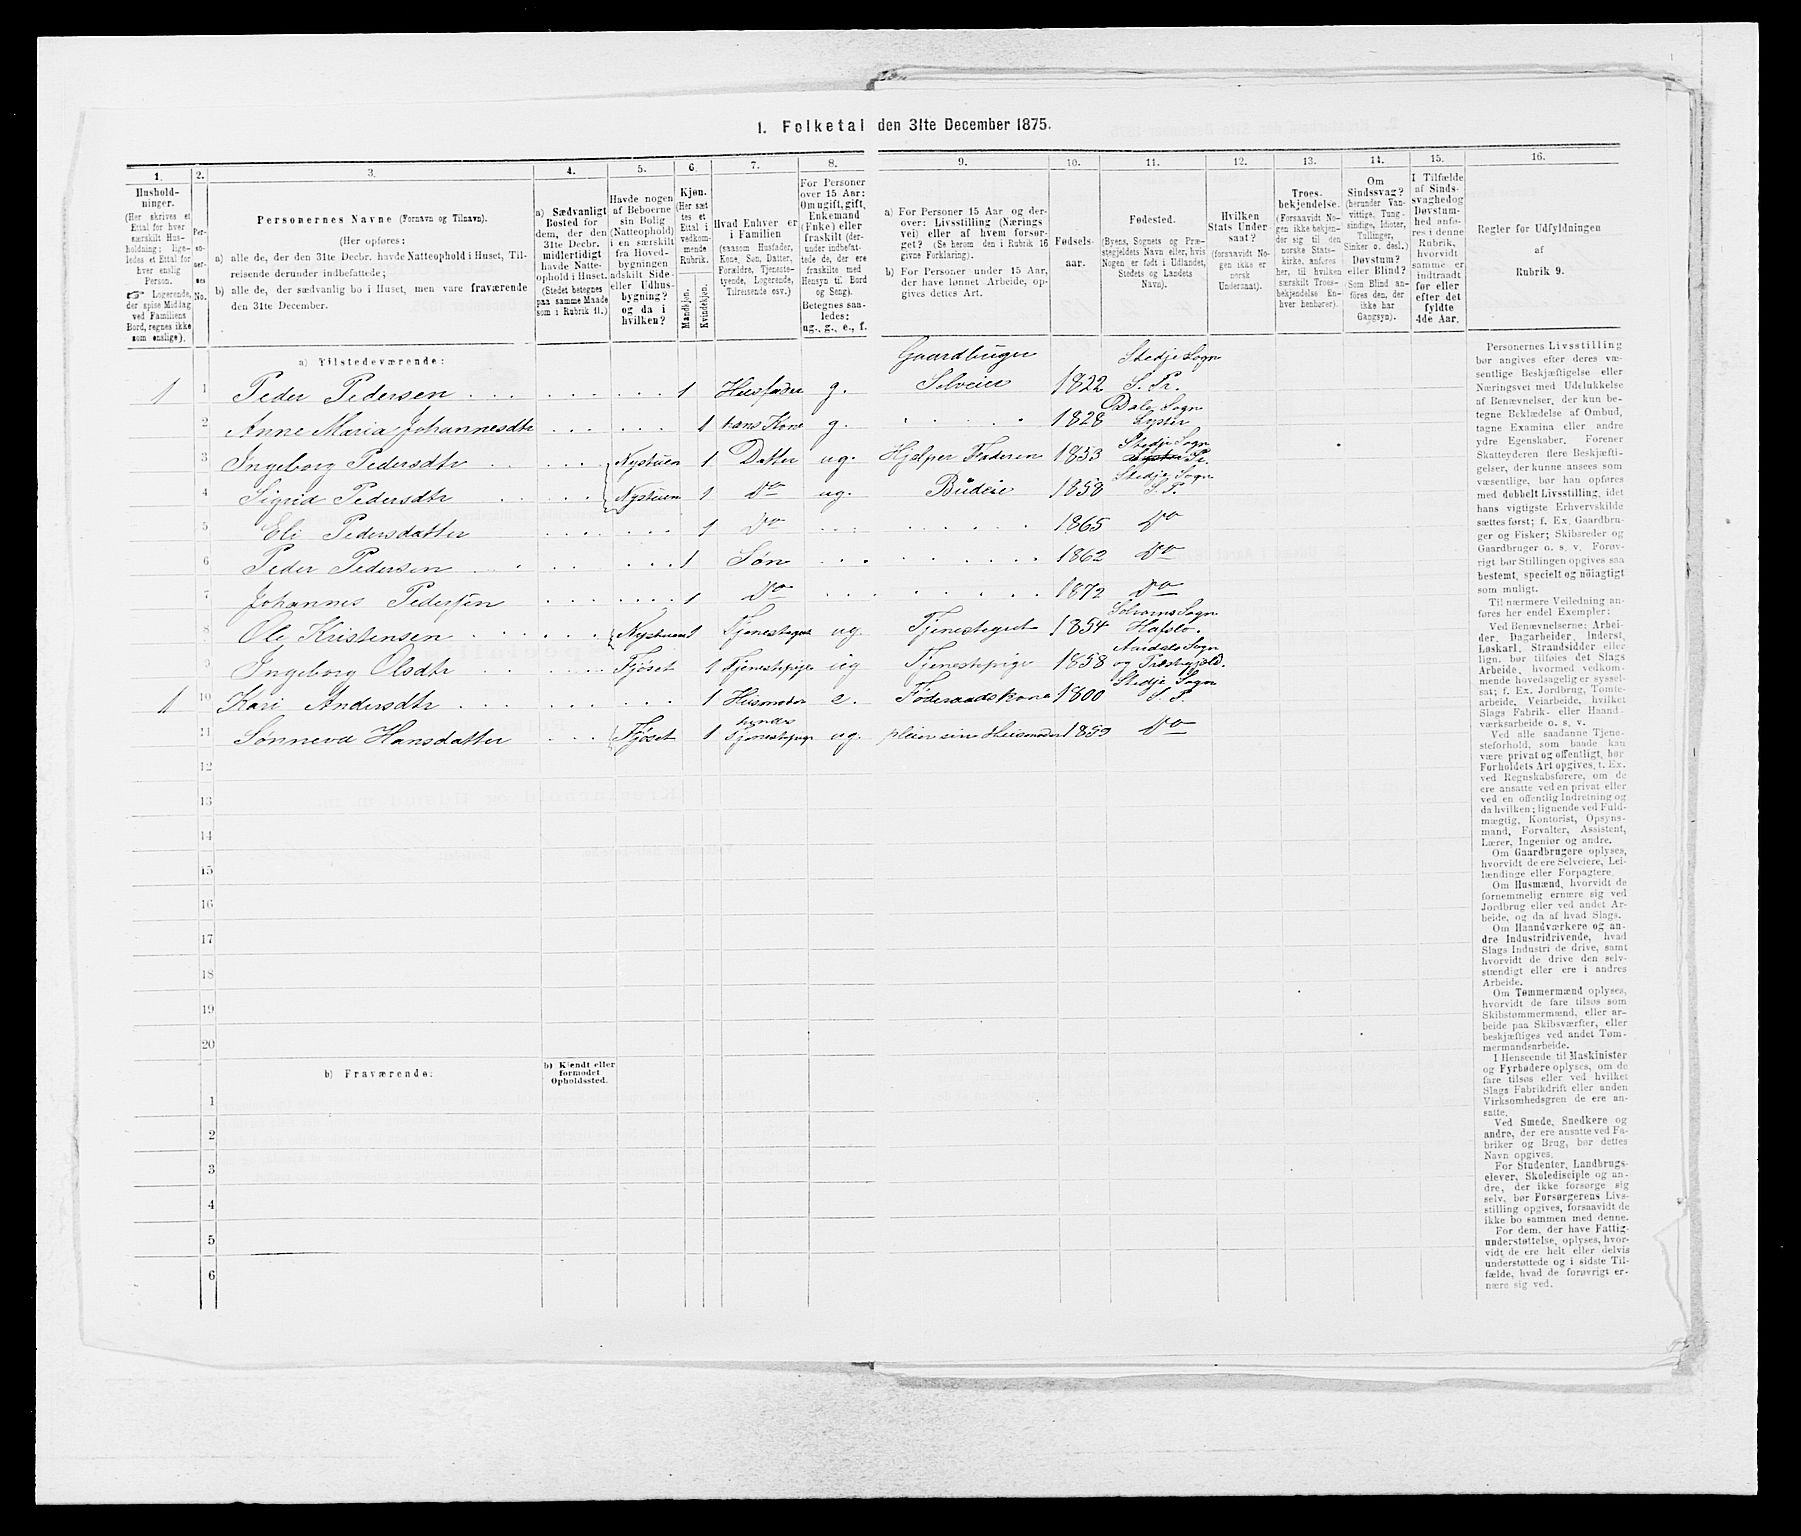 1. Folketal den 31te December 1875.
1. 2. 3. 4. 5. 6. 7. 8. 9. 10. 11. 12. 13. 14. 15. 16.
Hushold-
ninger.
(Her skrives et
Ettal for hver
særskilt Hus-
holdning; lige-
ledes et Ettal for
hver enslig
Person.
☞ Logerende,
der spise Middag
ved Familiens
Bord, regnes ikke
som enslige).
Per-
so-
ner-
nes
No.
Personernes Navne (Fornavn og Tilnavn).
(Her opføres:
a) alle de, der den 31te Decbr. havde Natteophold i Huset, Til-
reisende derunder indbefattede;
b) alle de, der sædvanlig bo i Huset, men vare fraværende
den 31te December.
a) Sædvanligt
Bosted for
dem, der den
31te Decbr.
midlertidigt
havde Natte-
ophold i Huset.
(Stedet betegnes
paa samme Maade
som i Rubrik 11.)
Havde nogen
af Beboerne
sin Bolig
(Natteophold)
i en særskilt
fra Hoved-
bygningen
adskilt Side-
eller Udhus-
bygning?
og da i
hvilken?
Kjøn.
(Her sæt-
tes et
Ettal i
vedkom-
mende
Rubrik.
Mandkjøn.
Kvindekjøn.
Hvad Enhver er
i Familien
(saasom Husfader,
Kone, Søn, Datter,
Forældre, Tjeneste-
tyende, Logerende,
Tilreisende osv.)
For Personer
over 15 Aar:
Om ugift, gift,
Enkemand
(Enke) eller
fraskilt (der-
under indbefat-
tede de, der ere
fraskilte med
Hensyn til Bord
og Seng).
Betegnes saa-
ledes:
ug., g., e., f.
a) For Personer 15 Aar og der-
over: Livsstilling (Nærings
vei) eller af hvem forsør-
get? (Se herom den i Rubrik 16
givne Forklaring).
b) For Personer under 15 Aar,
der have lønnet Arbeide, op-
gives dettes Art.
Fødsels-
aar.
Fødested.
(Byens, Sognets og Præ-
stegjeldets Navn eller, hvis
Nogen er født i Udlandet,
Stedets og Landets
Navn).
Hvilken
Stats Under-
saat?
(forsaavidt No-
gen ikke er
norsk
Undersaat).
Troes-
bekjendelse.
(Forsaavidt No-
gen ikke bekjen-
der sig til den
norske Stats-
kirke, anføres
her, til hvilken
særskilt Troes-
bekjendelse En-
hver henhører).
Om
Sindssvag?
(herunder Van-
vittige, Tung-
sindige, Idioter,
Tullinger,
Sinker o. desl.)
Døvstum?
eller Blind?
(Som Blind an-
føres den, der
ikke har
Gangsyn).
I Tilfælde
af Sinds-
svaghed og
Døvstum-
hed anfø-
res i denne
Rubrik,
hvorvidt
samme er
indtraadt
før eller
efter det
fyldte
4de Aar.
Regler for Udfyldningen
af
Rubrik 9.
a) Tilstedeværende:
1 1 Peder Pedersen 1 Husfader g. Gaardbruger Selveier 1822 Stedje Sogn S. Pr.
2 Anne Maria Johannesdtr 1 hans Kone g. 1828 Dale Sogn Lyster
3 Ingeborg Pedersdtr Nystuen 1 Datter ug. Hjelper Faderen 1853 Stedje Sogn Pr.
4 Sigrid Pedersdtr Nystuen 1 Do ug. Budeie 1858 Stedje Sogn S. P.
5 Eli Pedersdatter 1 Do 1865 Do
6 Peder Pedersen 1 Søn 1862 Do
7 Johannes Pedersen 1 Do 1872 Do
8 Ole Kristensen Nystuen 1 Tjenestegut ug. Tjenestegut 1854 Solvorns Sogn Hafslo.
9 Ingeborg Olsdtr Fjøset 1 Tjenestepige ug Tjenestepige 1858 Aurdals Sogn og Præstegjeld.
1 10 Kari Andersdtr 1 Husmoder e. Føderaadskone 1800 Stedje Sogn S. P.
11 Sønneva Hansdatter Fjøset 1 hendes Tjenestepige ug. pleier sin Husmoder 1859 Do
12
13
14
15
16
17
18
19
20
b) Fraværende:
b) Kjendt eller
formodet
Opholdssted.
1
2
3
4
5
6
Personernes Livsstilling
bør angives efter deres væ-
sentlige Beskjæftigelse eller
Næringsvei med Udelukkelse
af Benævnelser, der kun be-
tegne Beklædelse af Ombud,
tagne Examina eller andre
ydre Egenskaber. Forener
Skatteyderen flere Beskjæfti-
gelser, der kunne ansees som
væsentlige, bør han opføres
med dobbelt Livsstilling, idet
hans vigtigste Erhvervskilde
sættes først; f. Ex. Gaardbru-
ger og Fisker; Skibsreder og
Gaardbruger o. s. v. Forøv-
rigt bør Stillingen opgives saa
bestemt, specielt og nöiagtigt
som muligt.
Til nærmere Veiledning an-
føres her endel Exempler:
Ved Benævnelserne: Arbei-
der, Dagarbeider, Inderst,
Løskarl, Strandsidder eller
lign. bør tilføies det Slags
Arbeide, hvormed vedkom-
mende hovedsagelig er syssel-
sat; f. Ex. Jordbrug, Tomte-
arbeide, Veiarbeide, hvilket
Slags Fabrik- eller Haand-
værksarbeide o. s. v.
Ved alle saadanne Tjene-
steforhold, som baade kan
være privat og offentligt, bør
Forholdets Art opgives, t. Ex.
ved Regnskabsførere, om de
ere ansatte ved en privat eller
ved en offentlig Indretning og
da hvilken; lignende ved Fuld-
mægtig, Kontorist, Opsyns-
mand, Forvalter, Assistent,
Lærer, Ingeniør og andre.
Om Gaardbrugere oplyses,
hvorvidt de ere Selveiere, Lei-
lændinge eller Forpagtere.
Om Husmænd, hvorvidt de
fornemmelig ernære sig ved
Jordbrug eller ved andet Ar-
beide, og da af hvad Slags.
Om Haandværkere og an-
dre Industridrivende, hvad
Slags Industri de drive, samt
hvorvidt de drive den selv-
stændigt eller ere i andres
Arbeide.
Om Tømmermænd oplyses,
hvorvidt de fare tilsøs som
Skibstømmermænd, eller ar-
beide paa Skibsværfter, eller
beskjæftiges ved andet Tøm-
mermandsarbeide.
I Henseende til Maskinister
og Fyrbødere oplyses, om de
fare tilsøs eller ved hvilket
Slags Fabrikdrift eller anden
Virksomhedsgren de ere an-
satte.
Ved Smede, Snedkere og
andre, der ere ansatte ved Fa-
briker og Brug, bør dettes
Navn opgives.
For Studenter, Landbrugs-
elever, Skoledisciple og an-
dre, der ikke forsørge sig
selv, bør Forsørgerens Livs-
stilling opgives, forsaavidt de
ikke bo sammen med denne.
For dem, der have Fattig-
understøttelse, oplyses, hvor-
vidt de ere helt eller delvis
understøttede og i sidste Til-
fælde, hvad de forøvrigt er-
nære sig ved.